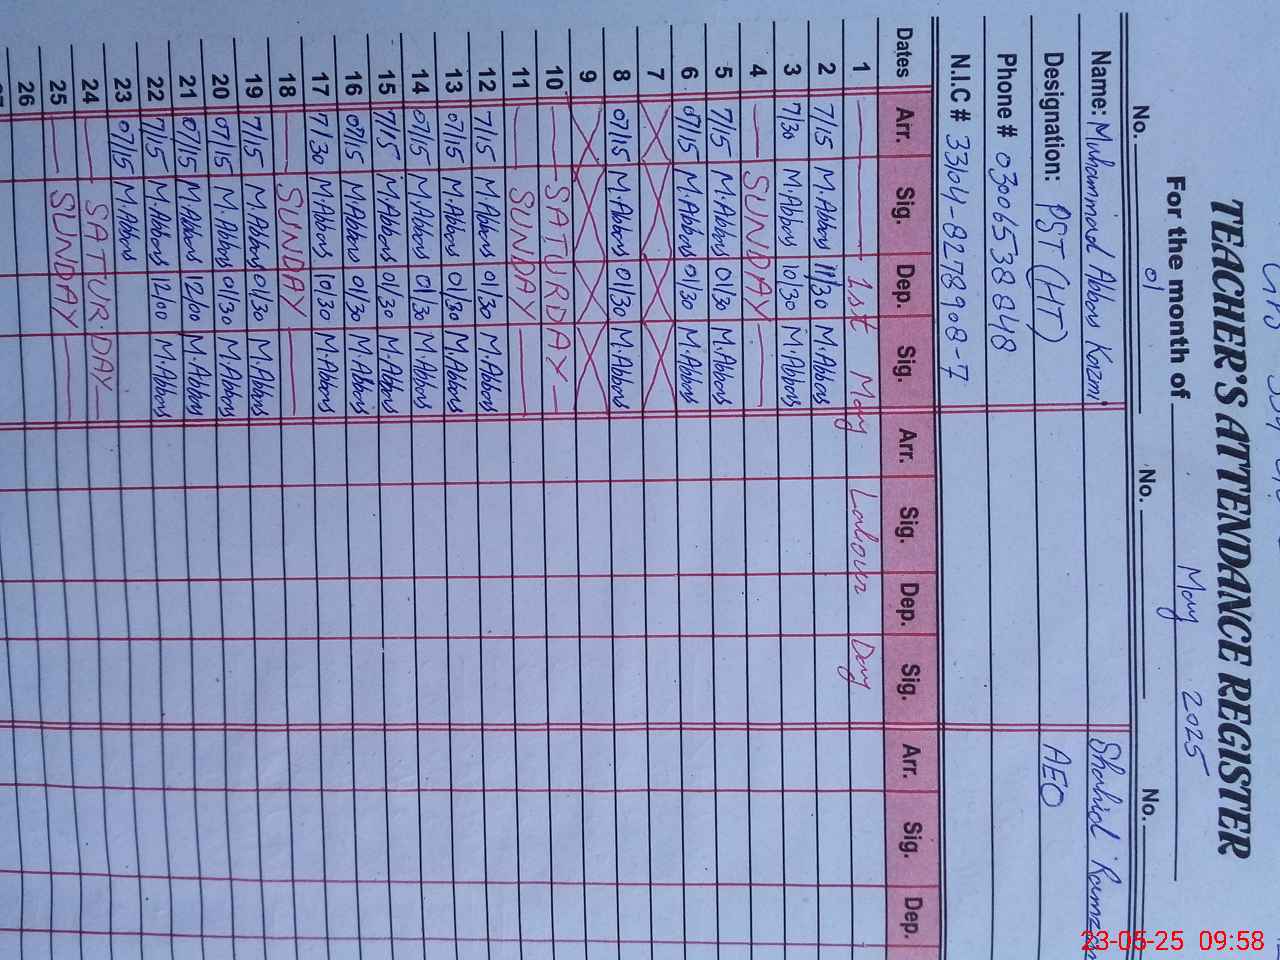 TEACHER'S ATTENDANCE REGISTER
For the month of May 2025
No. 01 No. No.
Name: Muhammad Abbas Kazmi Shahid
Designation: PST (HT) AEO
Phone # 03006538848
N.I.C # 33104-8278908-7
Dates Arr. Sig. Dep. Sig. Arr. Sig. Dep. Sig. Arr. Sig. Dep.
1 1st May Labour Day
2 7/15 M.Abbas 11/30 M.Abbas
3 7/30 M.Abbas 10/30 M.Abbas
4 SUNDAY
5 7/15 M.Abbas 01/30 M.Abbas
6 07/15 M.Abbas 01/30 M.Abbas
7
8 07/15 M.Abbas 01/30 M.Abbas
9
10 SATURDAY
11 SUNDAY
12 7/15 M.Abbas 01/30 M.Abbas
13 07/15 M.Abbas 01/30 M.Abbas
14 07/15 M.Abbas 01/30 M.Abbas
15 7/15 M.Abbas 01/30 M.Abbas
16 07/15 M.Abbas 01/30 M.Abbas
17 7/30 M.Abbas 10/30 M.Abbas
18 SUNDAY
19 7/15 M.Abbas 01/30 M.Abbas
20 07/15 M.Abbas 01/30 M.Abbas
21 07/15 M.Abbas 12/00 M.Abbas
22 7/15 M.Abbas 12/00 M.Abbas
23 07/15 M.Abbas
24 SATURDAY
25 SUNDAY
26
23-05-25 09:58